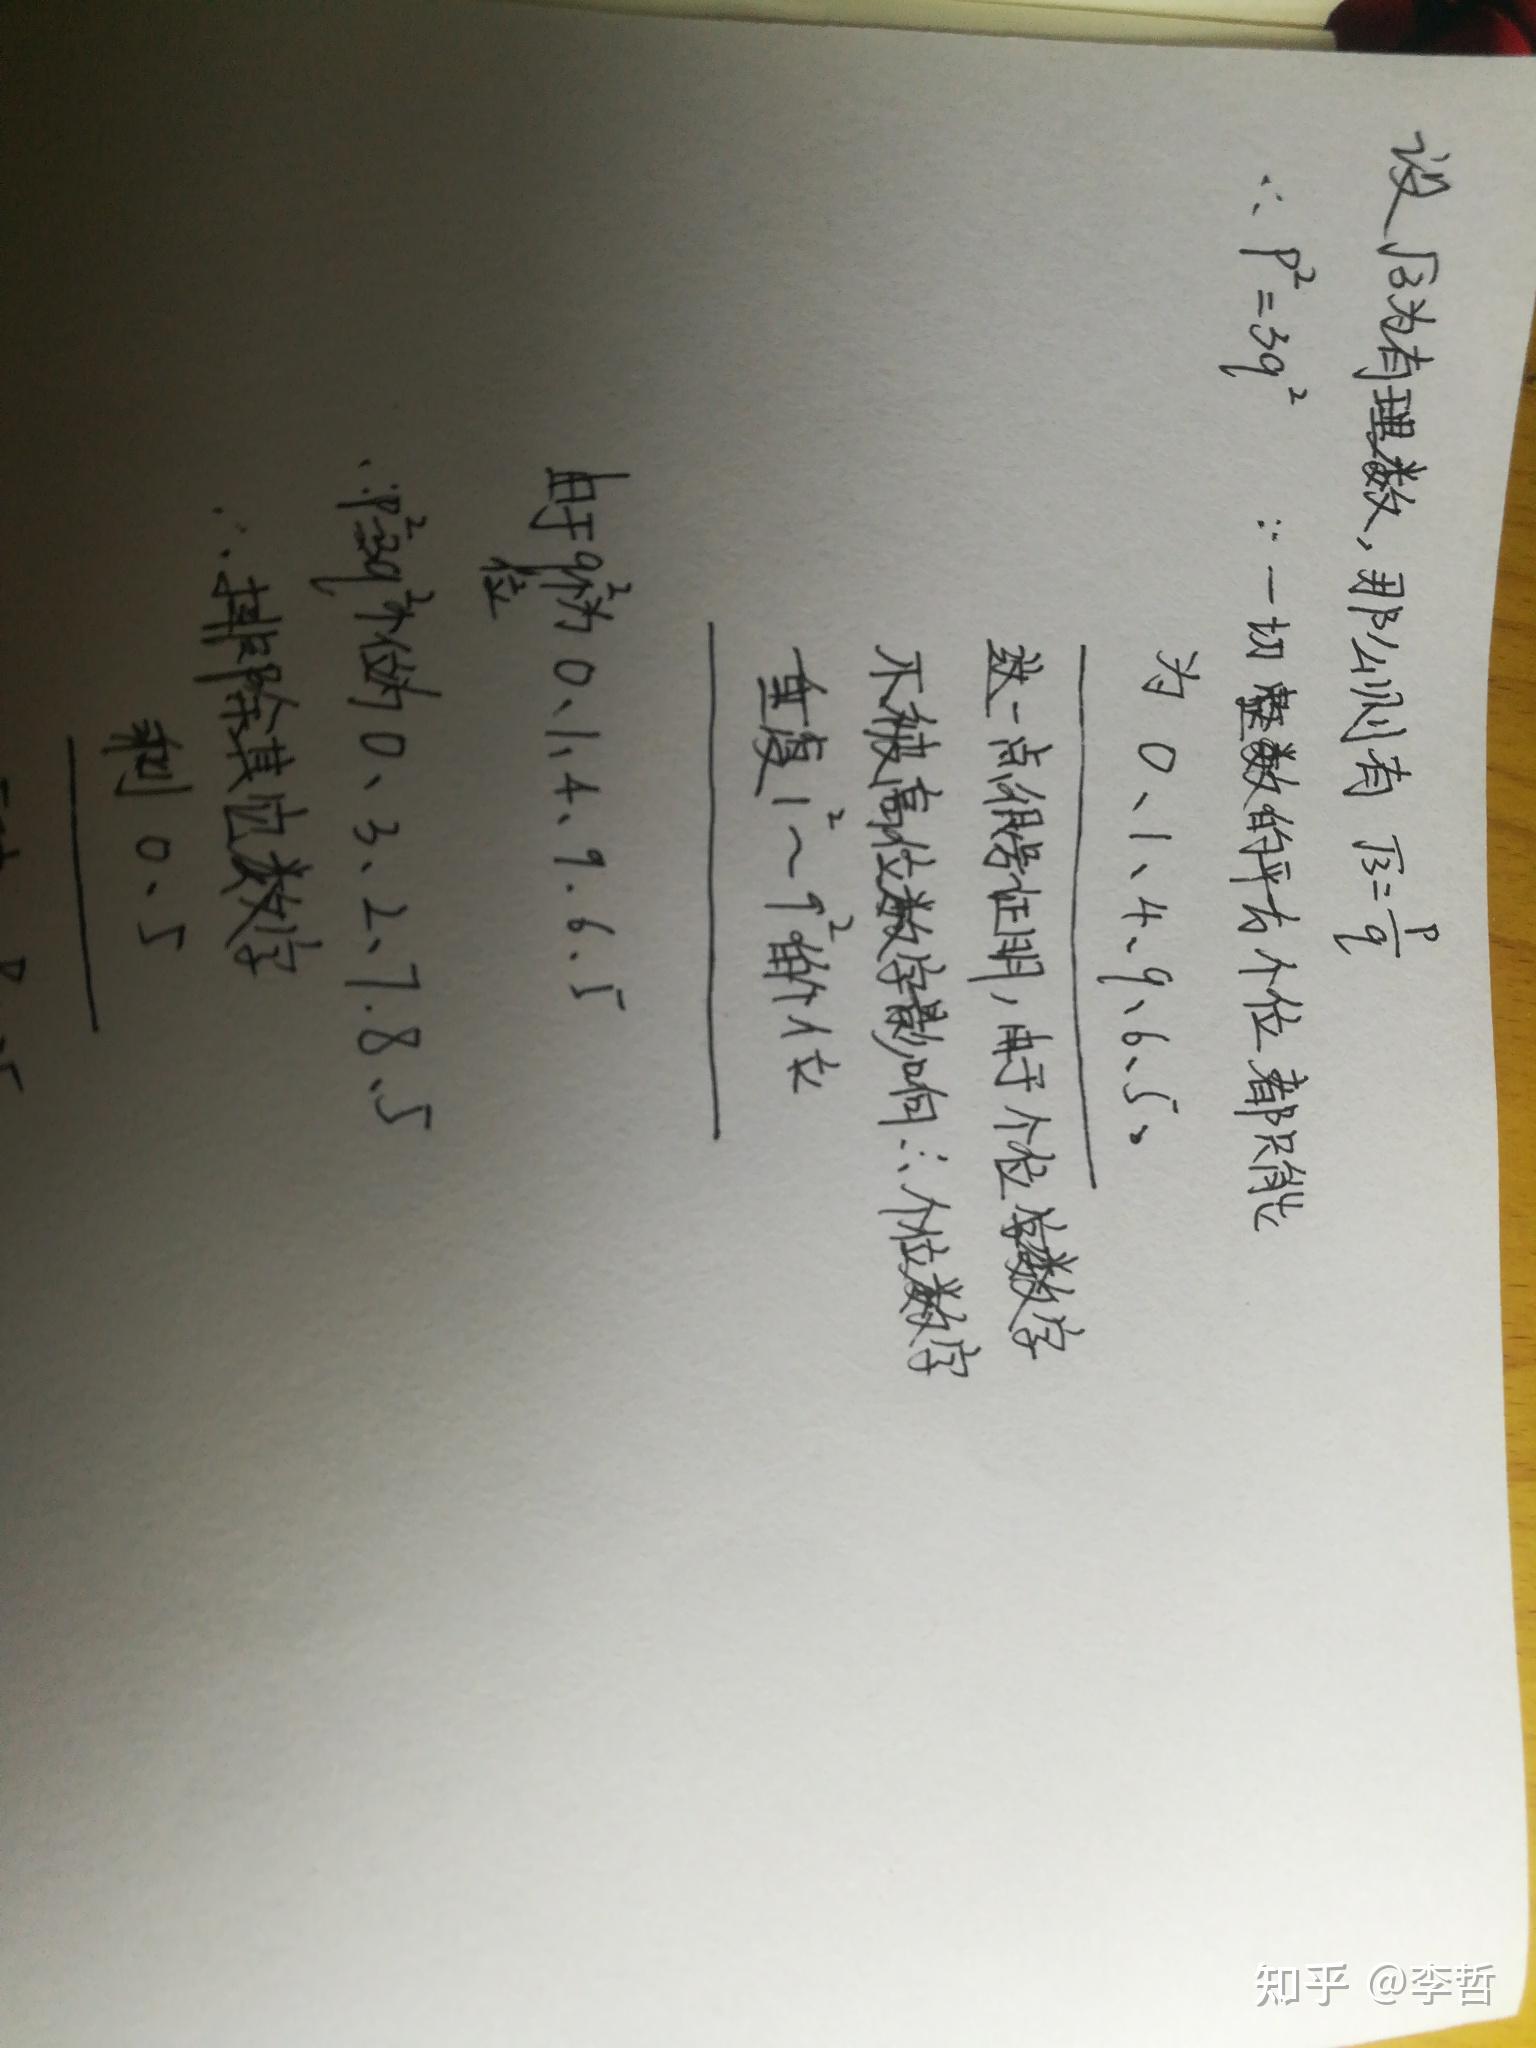 设√3为有理数，那么则有 √3=p/q
∴ p²=3q² ∵ 一切整数的平方个位都只能
为 0、1、4、9、6、5、
这一点很易证明，由于个位数字
不被高位数字影响 ∴ 个位数字
重复 1²～9² 的个位
由于q²个位为 0、1、4、9、6、5
∴p²=3q²个位为 0、3、2、7、8、5
∴ 排除其他数字
剩 0、5
知乎 @李哲